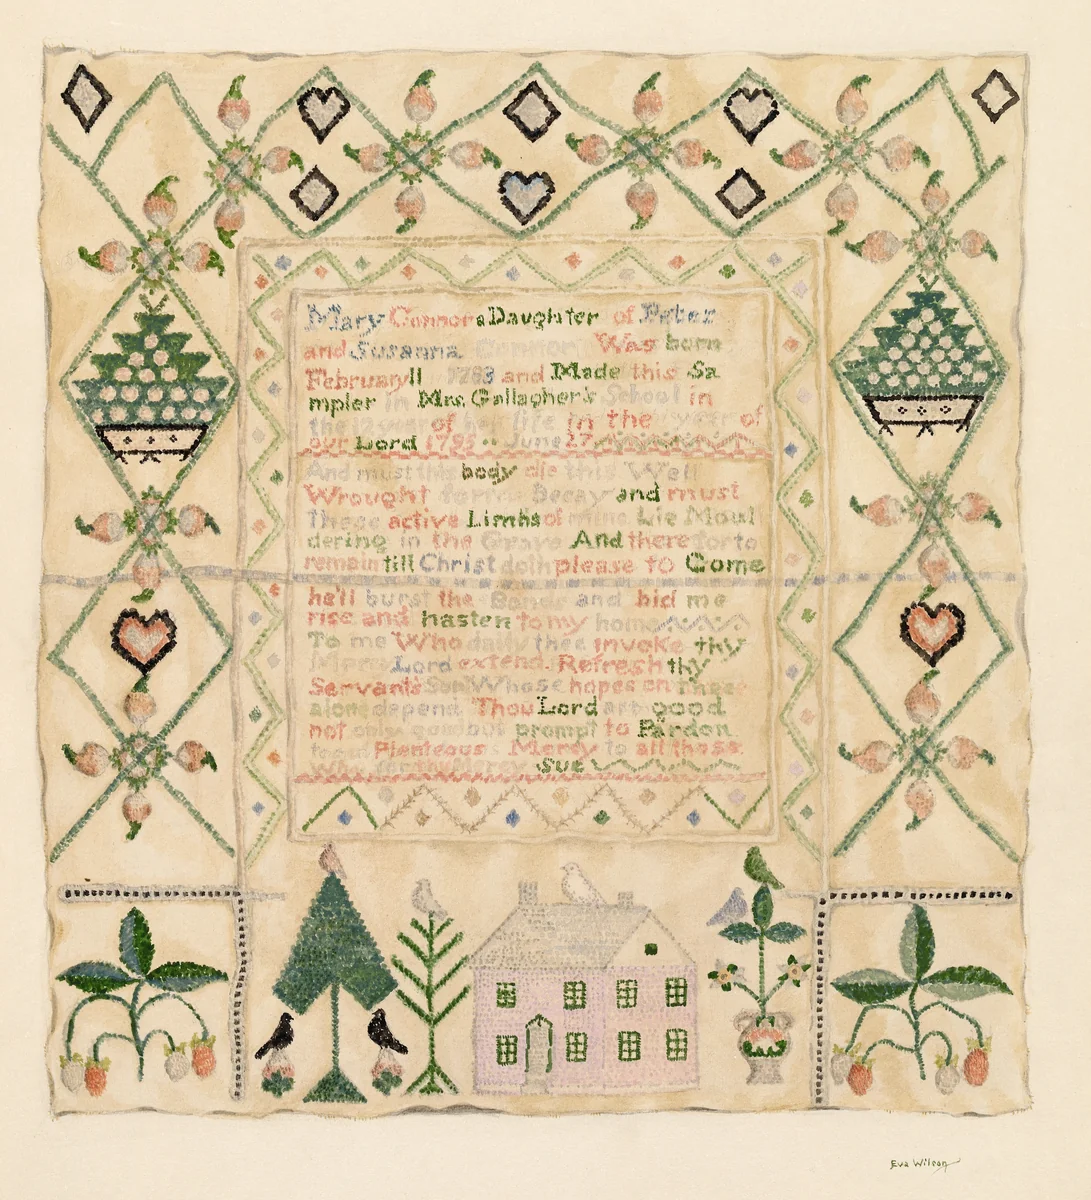 Mary Connor a Daughter of Peter
and Susanna Connor Was born
February 11 1783 and Made this Sa
mpler in Mrs. Gallagher's School in
the 12 year of her life in the year of
our Lord 1795 June 27
And must this body die this Well
Wrought form Decay and must
These active Limbs of mine Lie Moul
dering in the Grave And there for to
remain till Christ doth please to Come
he'll burst the Bands and bid me
rise and hasten to my home
To me Who daily thee invoke thy
Lord extend. Refresh thy
Servants Soul Whose hopes on thee
alone depend Thou Lord art good
not only good but prompt to Pardon
Plenteous Mercy to all those
Who for thy Mercy Sue
Eva Wilson